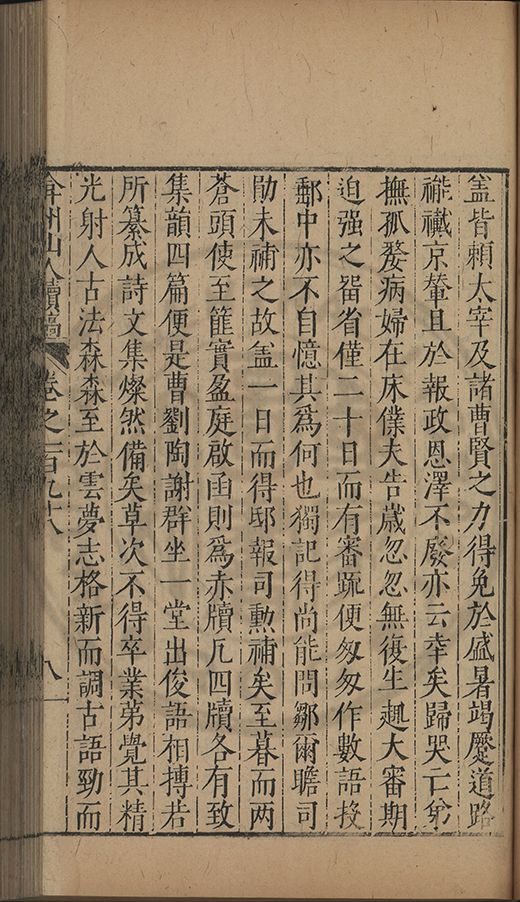 盖皆賴太宰及諸曹賢之力得免於盛暑竭蹷道路
襶京輦且於報政恩澤不廢亦云幸矣歸哭亡爺
撫孤嫠病婦在床僕夫告歲忽忽無復生趣大審期
迫强之畱省僅二十日而有審䟽便匆匆作數語投
郵中亦不自憶其爲何也獨記得尚能問鄒爾瞻司
勛未補之故盖一日而得邸報司勳補矣至暮而两
蒼頭使至篚實盈庭啟函則爲赤牘凢四牘各有致
集韻四篇便是曹劉陶謝群坐一堂出俊語相摶若
所纂成詩文集燦然備矣草次不得卒業苐覺其精
光射人古法森森至於雲夢志格新而調古語勁而
弇州山人續稿 卷之一百九十八 八